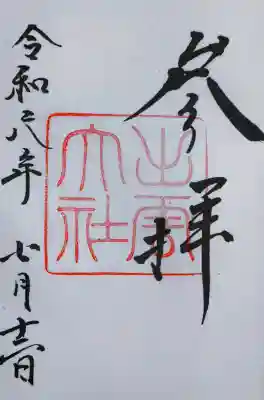 参拝
出雲
大社
令和六年
七月十六日